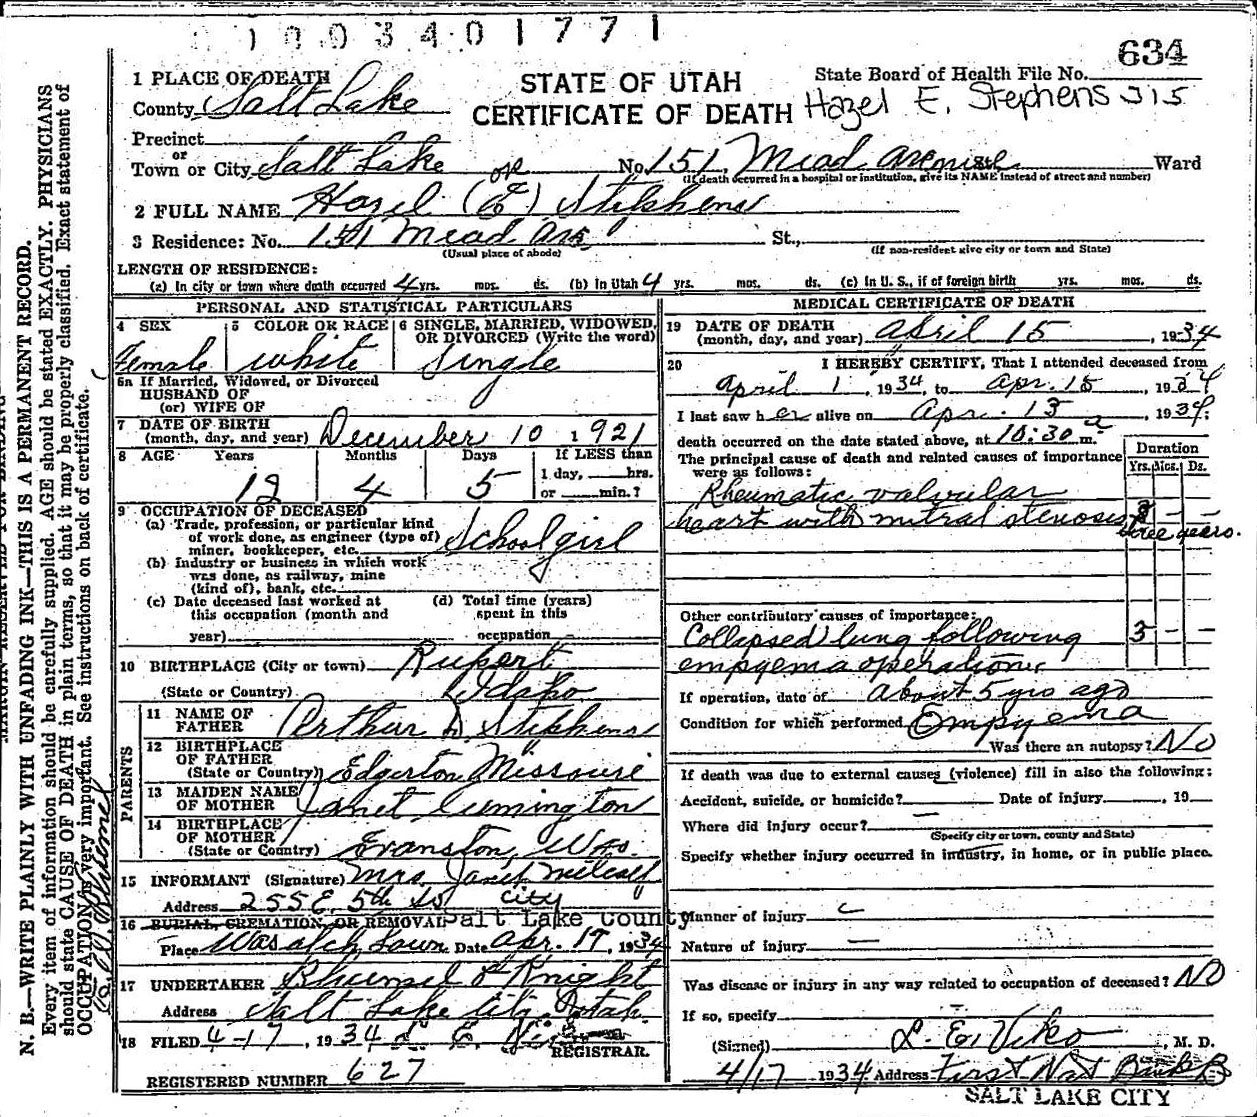 1003401771
634
1 PLACE OF DEATH
STATE OF UTAH
State Board of Health File No.
County Salt Lake
CERTIFICATE OF DEATH
Hazel E. Stephens 315
Precinct
or
Town or City Salt Lake No. 151 Mead Avenue Ward
(If death occurred in a hospital or institution, give its NAME instead of street and number)
2 FULL NAME Hazel (E) Stephens
3 Residence: No. 151 Mead Ave St.,
(Usual place of abode) (If non-resident give city or town and State)
LENGTH OF RESIDENCE:
(a) In city or town where death occurred 4 yrs. mos. ds. (b) In Utah 4 yrs. mos. ds. (c) In U. S., if of foreign birth yrs. mos. ds.
PERSONAL AND STATISTICAL PARTICULARS
4 SEX
Female
5 COLOR OR RACE
White
6 SINGLE, MARRIED, WIDOWED, OR DIVORCED (Write the word)
Single
6a If Married, Widowed, or Divorced
HUSBAND OF
(or) WIFE OF
7 DATE OF BIRTH
(month, day, and year) December 10 1921
8 AGE Years Months Days If LESS than
1 day, hrs.
or min.?
12 4 5
9 OCCUPATION OF DECEASED
(a) Trade, profession, or particular kind
of work done, as engineer (type of)
miner, bookkeeper, etc. School girl
(b) Industry or business in which work
was done, as railway, mine
(kind of), bank, etc.
(c) Date deceased last worked at
this occupation (month and
year)
(d) Total time (years)
spent in this
occupation
10 BIRTHPLACE (City or town) Rupert
(State or Country) Idaho
PARENTS
11 NAME OF
FATHER Arthur D Stephens
12 BIRTHPLACE
OF FATHER
(State or Country) Edgerton Missouri
13 MAIDEN NAME
OF MOTHER Janet Cumington
14 BIRTHPLACE
OF MOTHER
(State or Country) Evanston, Wyo.
15 INFORMANT (Signature) Mrs. Janet Metcalf
Address 255 E. 5th So City
16 BURIAL, CREMATION, OR REMOVAL Salt Lake County
Place Wasatch Lawn Date Apr. 17, 1934
17 UNDERTAKER & Knight
Address Salt Lake City Utah.
18 FILED 4-17, 1934
REGISTRAR.
REGISTERED NUMBER 627
MEDICAL CERTIFICATE OF DEATH
19 DATE OF DEATH
(month, day, and year) April 15, 1934
20 I HEREBY CERTIFY, That I attended deceased from
April 1, 1934, to Apr. 15, 1934
I last saw her alive on Apr. 13, 1934;
death occurred on the date stated above, at 10:30 a m.
The principal cause of death and related causes of importance
were as follows:
Duration
Yrs. Mos. Ds.
Rheumatic valvular
heart with mitral stenosis 3 - -
three years.
Other contributory causes of importance:
Collapsed lung following 5 - -
empyema operation
If operation, date of about 5 yrs ago
Condition for which performed Empyema
Was there an autopsy? No
If death was due to external causes (violence) fill in also the following:
Accident, suicide, or homicide? Date of injury , 19
Where did injury occur? -
(Specify city or town, county and State)
Specify whether injury occurred in industry, in home, or in public place.
Manner of injury
Nature of injury -
Was disease or injury in any way related to occupation of deceased? NO
If so, specify
(Signed) L. E. Viko, M. D.
4/17 1934 Address First Nat Bank B
SALT LAKE CITY
N. B.—WRITE PLAINLY WITH UNFADING INK—THIS IS A PERMANENT RECORD.
Every item of information should be carefully supplied. AGE should be stated EXACTLY. PHYSICIANS
should state CAUSE OF DEATH in plain terms, so that it may be properly classified. Exact statement of
OCCUPATION is very important. See instructions on back of certificate.